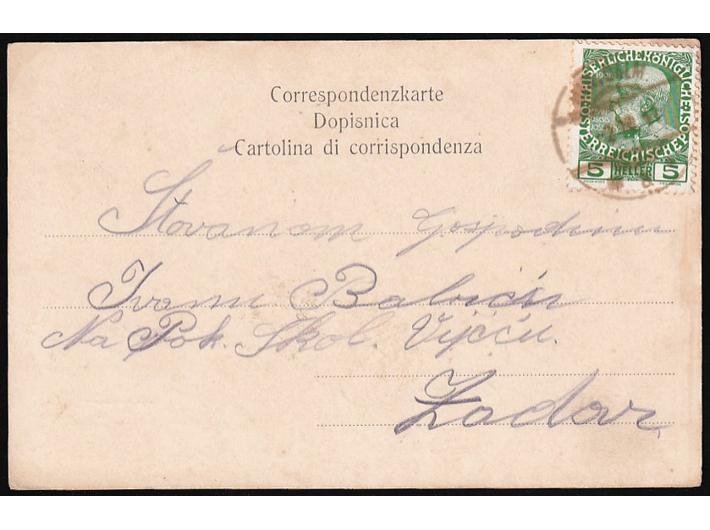 Correspondenzkarte
Dopisnica
Cartolina di corrispendenza
KAISERLICHEKÖNIGLICHE
ÖSTERREICHISCHE
5 HELLER 5
Štovanom Gospodinu
Ivanu Babiću
Na Pok. Škol. Vijeću.
Zadar